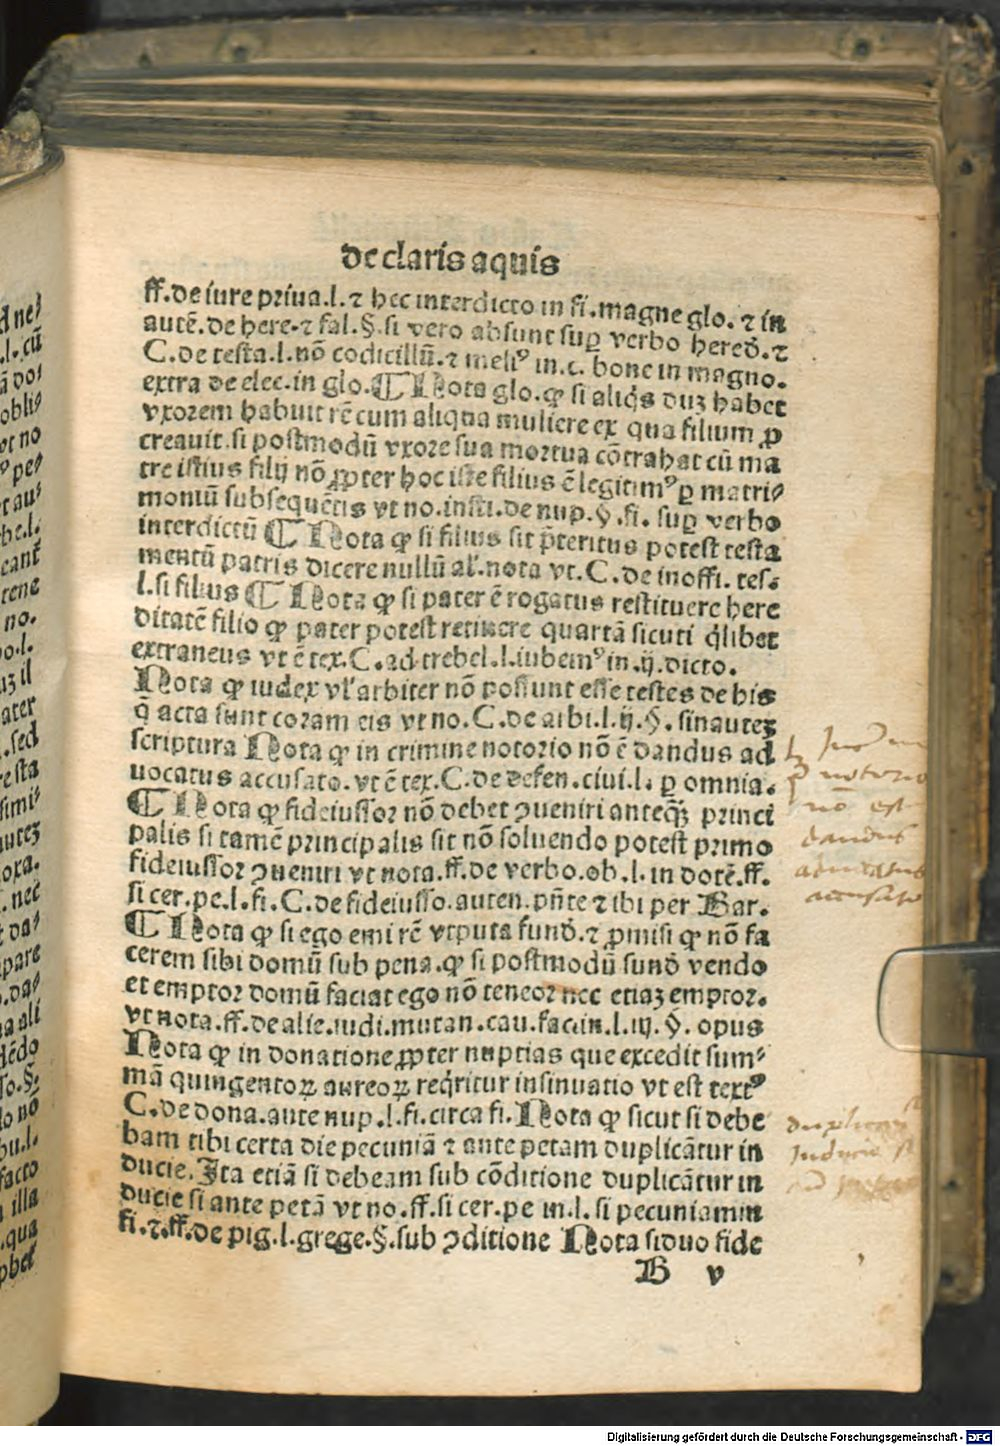 de claris aquis
ff.de iure priua.l.⁊ hec interdicto in fi.magne glo. ⁊ in
autē.de here.⁊ fal.§.si vero absunt suꝑ verbo hered̄.⁊
C.de testa.l.nō codicillū.⁊ meliꝰ in.c. bone in magno.
extra de elec.in glo.¶ Nota glo.ꝙ si aliq̇s duꝫ habet
vxorem habuit rē cum aliqua muliere ex qua filium ꝓ
creauit.si postmodū vxore sua mortua cōtrahat cū ma
tre istius filij nō ꝓpter hoc iste filius ē legitimꝰ ꝑ matri⸗
moniū subsequētis vt no.insti.de nup.§.fi. suꝑ verbo
interdictū ¶ Nota ꝙ si filius sit p̄teritus potest testa
mentū patris dicere nullū al̓.nota vt.C.de inoffi. tes⸗
l.si filius ¶ Nota ꝙ si pater ē rogatus restituere here
ditatē filio ꝙ pater potest retinere quartā sicuti q̇libet
extraneus vt ē tex.C.ad trebel.l.iubemꝰ in.ij.dicto.
Nota ꝙ iudex vl̓ arbiter nō possunt esse testes de his
q̄ acta sunt coram eis vt no.C.de arbi.l.ij.§. sinauteꝫ
scriptura Nota ꝙ in crimine notorio nō ē dandus ad
uocatus accusato.vt ē tex.C.de defen.ciui.l. ꝑ omnia.
¶ Nota ꝙ fideiussor nō debet ꝯueniri anteqꝫ princi
palis si tamē principalis sit nō soluendo potest primo
fideiussor ꝯueniri vt nota.ff.de verbo.ob.l.in dotē.ff.
si cer.pe.l.fi.C.de fideiusso.auten.pn̄te ⁊ ibi per Bar.
¶ Nota ꝙ si ego emi rē vtputa fund̄.⁊ ꝓmisi ꝙ nō fa
cerem sibi domū sub pena.ꝙ si postmodū fund̄ vendo
et emptor domū faciat ego nō teneor nec etiaꝫ emptor.
vt nota.ff.de alie.iudi.mutan.cau.factin.l.iij.§. opus
Nota ꝙ in donatione ꝓpter nuptias que excedit sum⸗
mā quingentoꝝ aureoꝝ req̇ritur insinuatio vt est textꝰ
C.de dona.ante nup.l.fi.circa fi.Nota ꝙ sicut si debe
bam tibi certa die pecuniā ⁊ ante petam duplicātur in
ducie.Ita etiā si debeam sub cōditione duplicātur in
ducie si ante petā vt no.ff.si cer.pe in.l.si pecuniamin
fi.⁊.ff.de pig.l.grege.§.sub ꝯditione Nota si duo fide
B v
notorio
nō est
dandus
aduocatus
accusato
Inducie
Digitalisierung gefördert durch die Deutsche Forschungsgemeinschaft - DFG